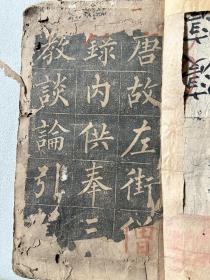 唐故左街僧
錄内供奉三
教談論引